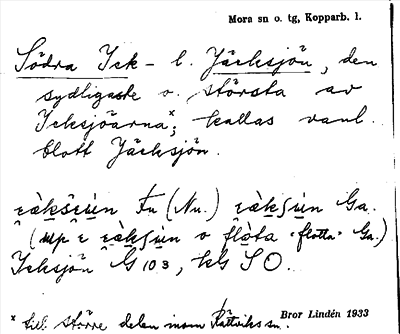 Mora sn o. tg, Kopparb. l.
Södra Ick - l. Jäcksjön, den
sydligaste o. största av
Icksjöarna×; kallas vanl.
blott Jäcksjön.
Fu (Nu.) Ga.
(up o flåta "flotta" Ga.)
Icksjön G 103, kG SO.
× till större delen inom Rättviks sn.
Bror Lindén 1933